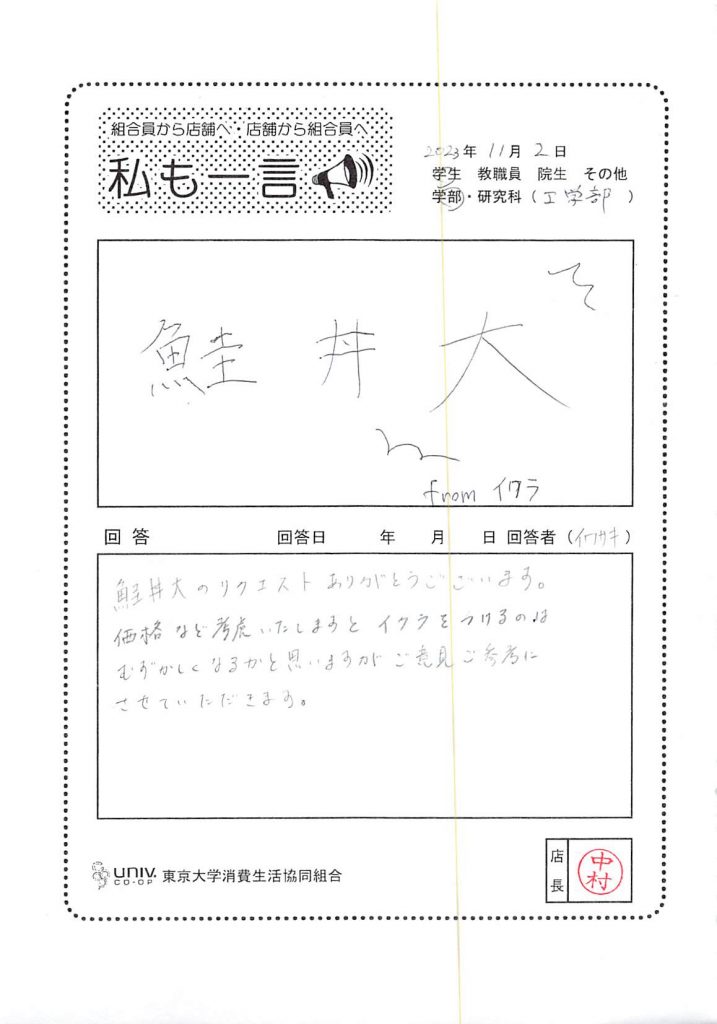 組合員から店舗へ・店舗から組合員へ
私も一言
2023年 11月 2日
学生 教職員 院生 その他
学部・研究科(工学部)
鮭 丼 大
from イクラ
回答 回答日 年 月 日 回答者(イワサキ)
鮭丼大のリクエストありがとうございます。
価格など考慮いたしますと イクラをつけるのは
むずかしくなるかと思いますが ご意見ご参考に
させていただきます。
UNIV.
CO-OP
東京大学消費生活協同組合
店長
中村